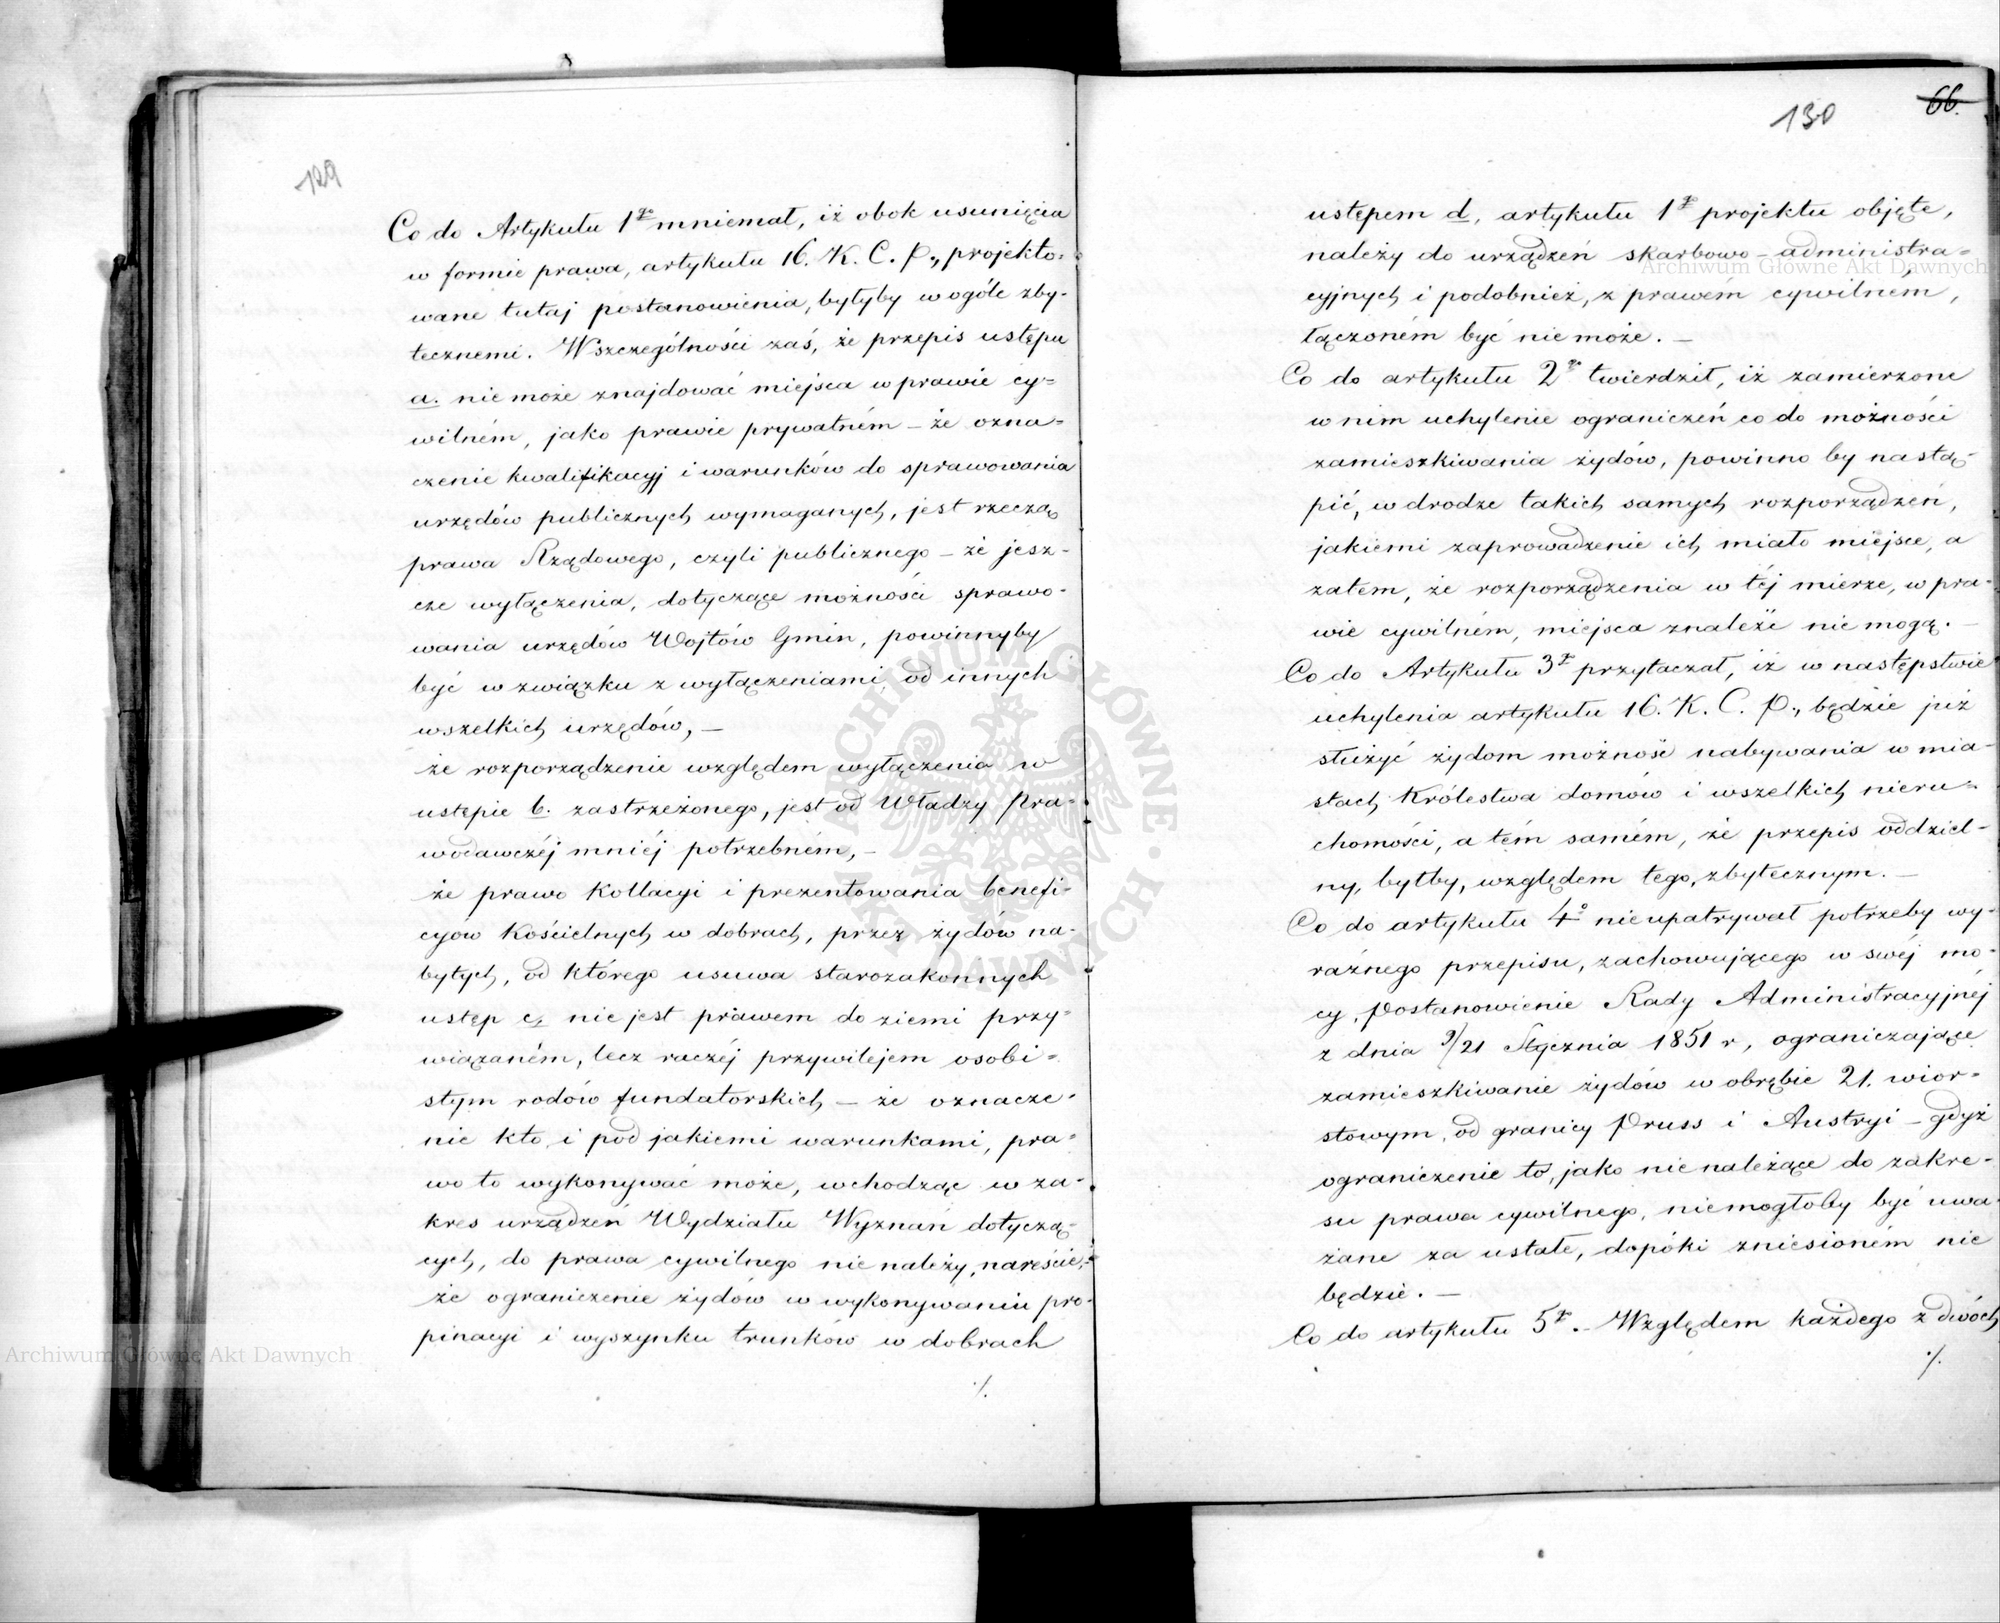 129
Co do Artykułu 1go mniemał, iż obok usunięcia
w formie prawa, artykułu 16. K. C. P., projekto=
wane tutaj postanowienia, byłyby w ogóle zby-
tecznemi. W szczególności zaś, że przepis ustępu
a. nie może znajdować miejsca w prawie cy=
wilném, jako prawie prywatném – że ozna=
czenie kwalifikacyj i warunków do sprawowania
urzędów publicznych wymaganych, jest rzeczą
prawa Rządowego, czyli publicznego – że jesz-
cze wyłączenia, dotyczące możności sprawo-
wania urzędów Wojtów Gmin, powinnyby
być w związku z wyłączeniami, od innych
wszelkich urzędów, –
że rozporządzenie względem wyłączenia w
ustępie b. zastrzeżonego, jest od Władzy Pra=
wodawczéj mniéj potrzebném, –
że prawo Kollacyi i prezentowania benefi-
cyow Kościelnych w dobrach, przez żydów na-
bytych, od którego usuwa starozakonnych
ustęp c, nie jest prawem do ziemi przy-
wiązaném, lecz raczéj przywilejem osobi=
stym rodów fundatorskich – że oznacze-
nie kto i pod jakiemi warunkami, pra=
wo to wykonywać może, wchodząc w za-
kres urządzeń Wydziału Wyznań dotyczą-
cych, do prawa cywilnego nie należy, nareście,
że ograniczenie żydów w wykonywaniu pro-
pinacyi i wyszynku trunków w dobrach
./.
130
66.
ustępem d, artykułu 1go projektu objęte,
należy do urządzeń skarbowo – administra=
cyjnych i podobnież, z prawem cywilném,
łączoném być nie może. –
Co do artykułu 2go twierdził, iż zamierzone
w nim uchylenie ograniczeń co do możności
zamieszkiwania żydów, powinno by nastą-
pić, w drodze takich samych rozporządzeń,
jakiemi zaprowadzenie ich miało miejsce, a
zatem, że rozporządzenia w téj mierze, w pra-
wie cywilném, miejsca znaleźć nie mogą. –
Co do Artykułu 3go przytaczał, iż w następstwie
uchylenia artykułu 16. K. C. P., będzie już
służyć żydom możność nabywania w mia-
stach Królestwa domów i wszelkich nieru=
chomości, a tém samém, że przepis oddziel-
ny, byłby, względem tego, zbytecznym. –
Co do artykułu 4o nieupatrywał potrzeby wy-
raźnego przepisu, zachowującego w swéj mo-
cy, Postanowienie Rady Administracyjnéj
z dnia 9/21 Stycznia 1851 r, ograniczające
zamieszkiwanie żydów w obrębie 21. wior-
stowym, od granicy Pruss i Austryi – gdyż
ograniczenie to, jako nienależące do zakre-
su prawa cywilnego, niemogłoby być uwa-
żane za ustałe, dopóki zniesioném nie
będzie. –
Co do artykułu 5go. – Względem każdego z dwóch
./.
Archiwum Główne Akt Dawnych
Archiwum Główne Akt Dawnych
ARCHIWUM GŁÓWNE · AKT DAWNYCH ·